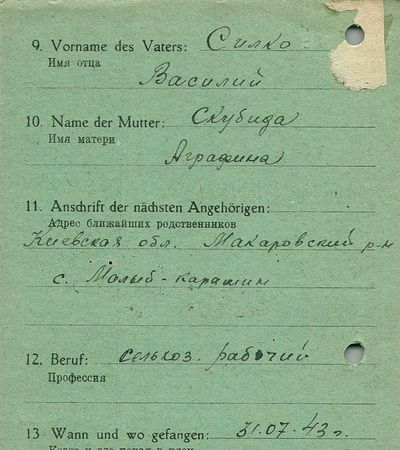 9. Vorname des Vaters: Силко
Имя отца
Василий
10. Name der Mutter: Скубида
Имя матери
Аграфина
11. Anschrift der nächsten Angehörigen:
Адрес ближайших редственников
Киевская обл. Макаровский р-н
с. Малый-карашин
12. Beruf: сельхоз. рабочий
Профессия
13 Wann und wo gefangen: 31.07.43 г.